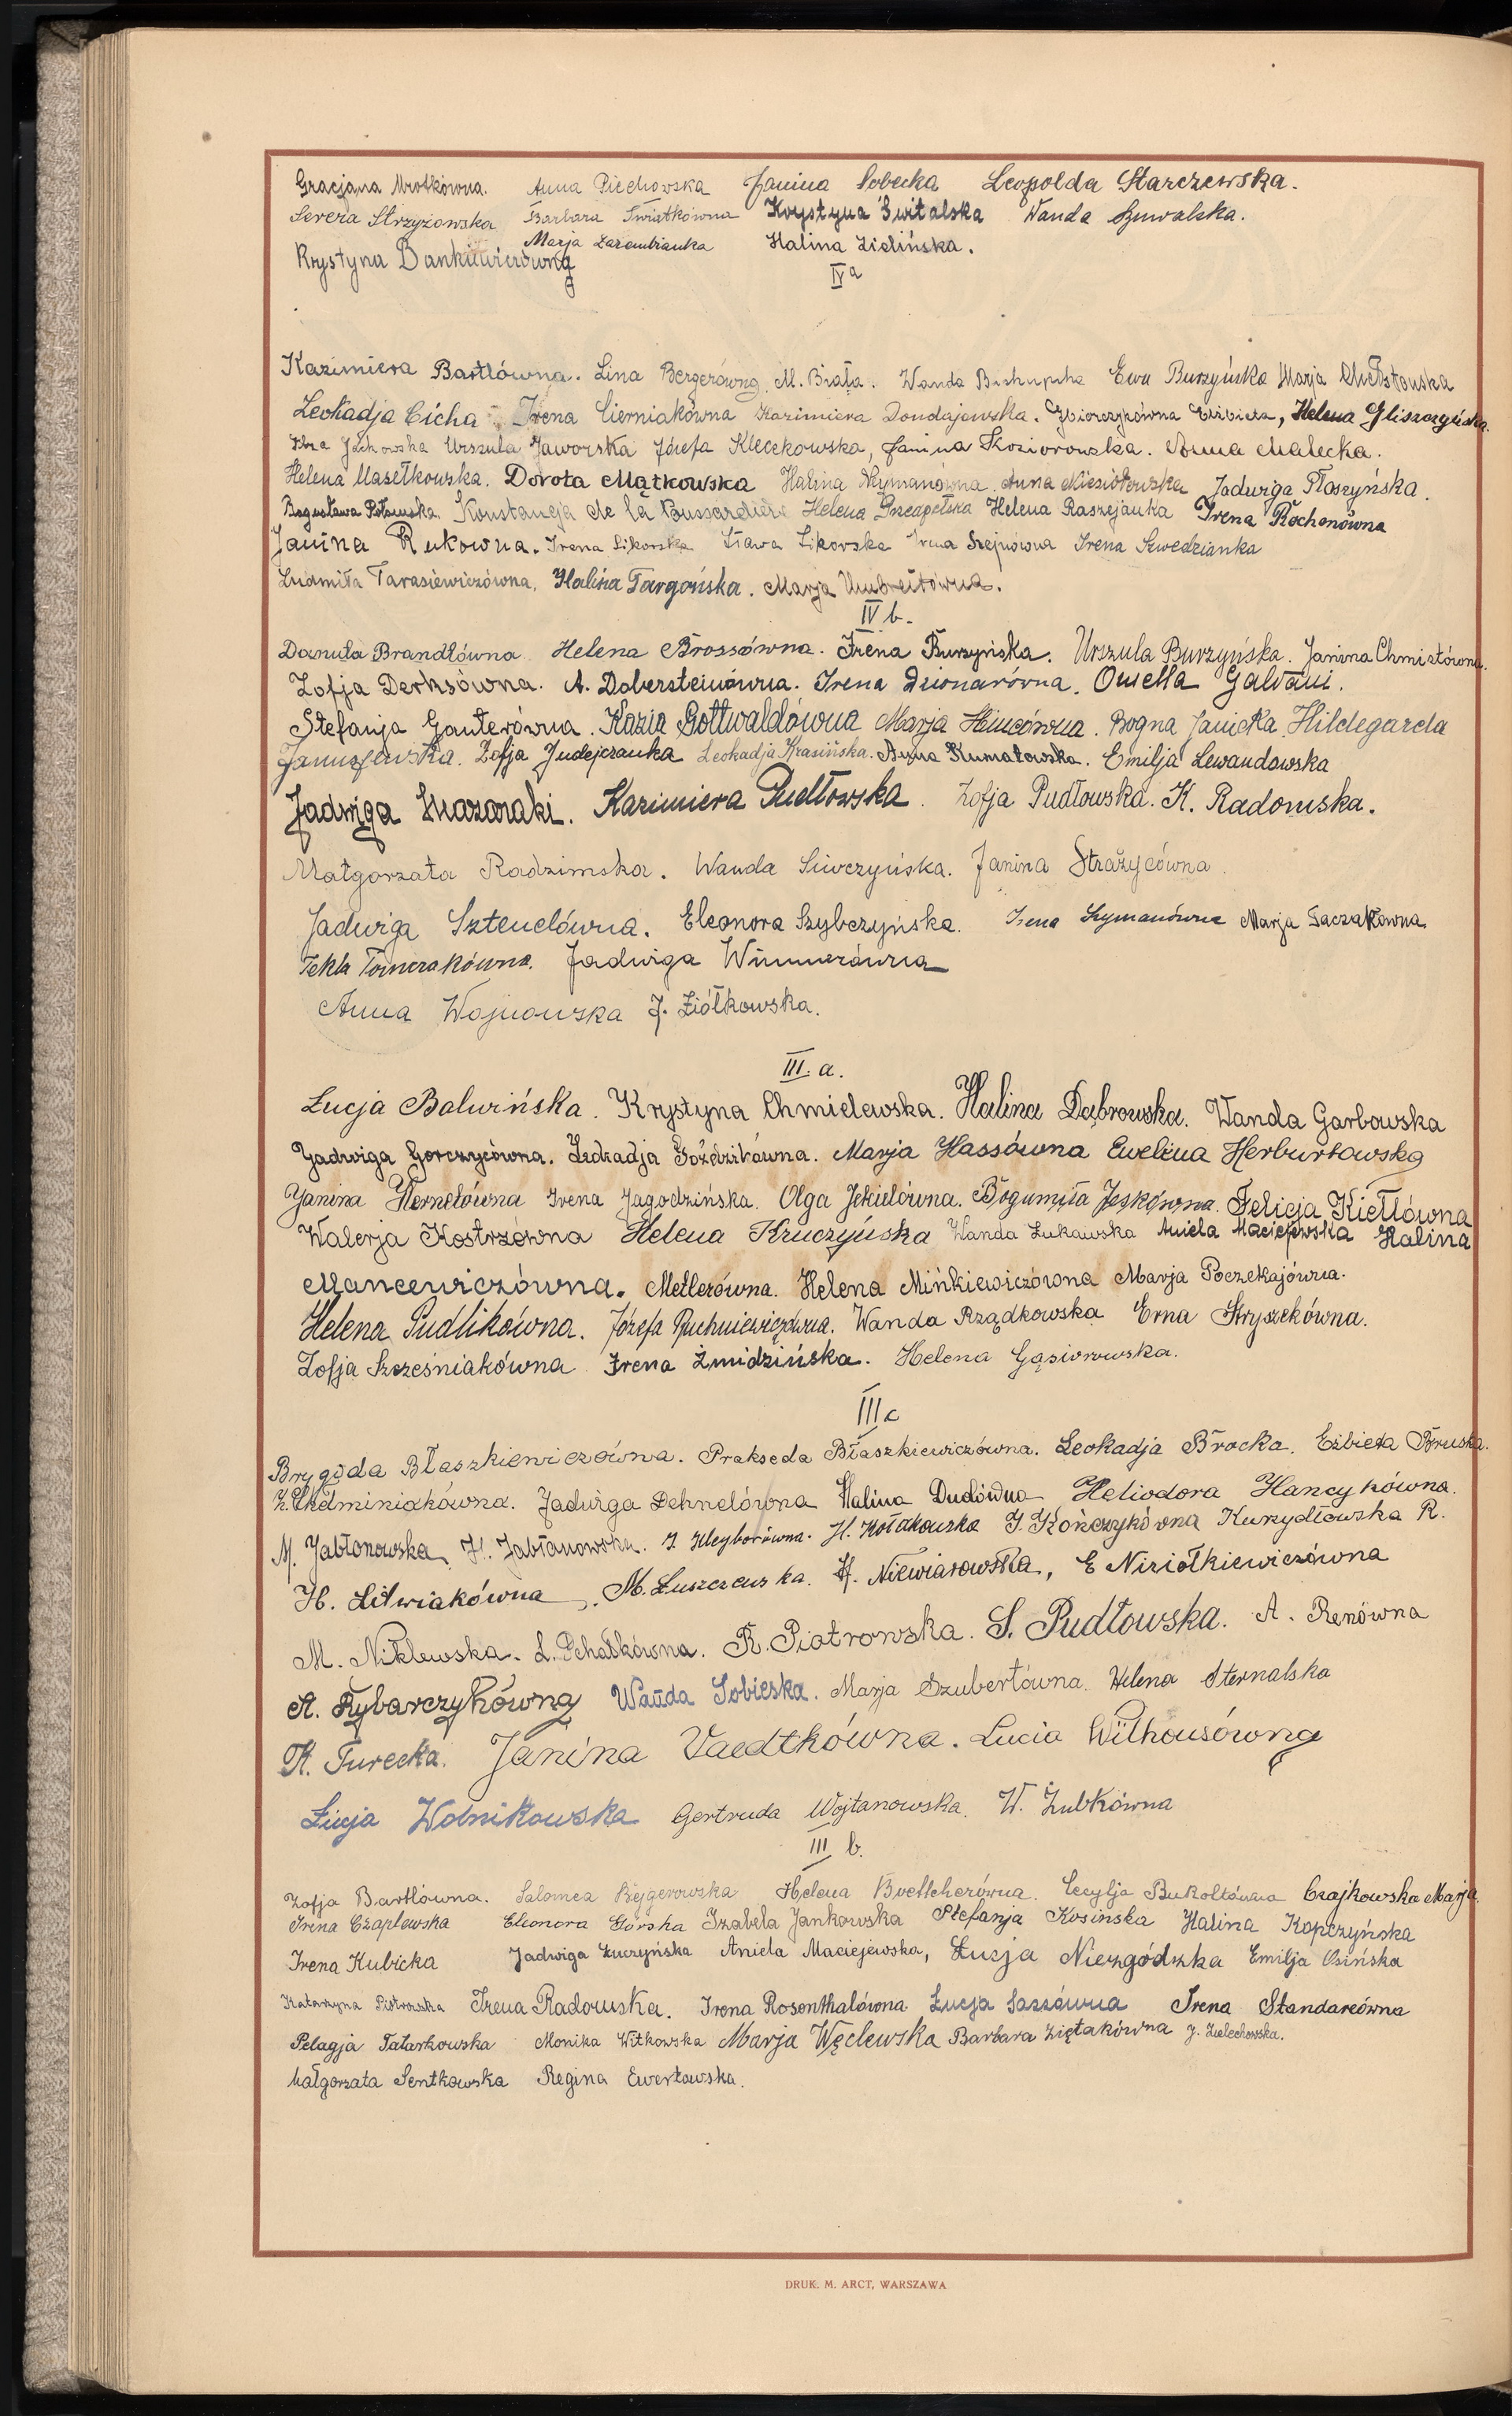 Gracjana Mrotkówna. Anna Piechowska Janina Sobecka Leopolda Starczewska.
Serera Strzyżowska Barbara Świątkówna Krystyna Świtalska Wanda Szuwalska.
Marja Zarembianka Halina Zielińska.
Krystyna Bankiewiczówna
IV a
Kazimiera Bartlówna. Lina Bergerówna. M. Biała. Wanda Ewa Burzyńska Marja Chełstowska
Leokadja Cicha Irena Cierniakówna Kazimiera Dondajewska. Elżbieta, Helena Gliszczyńska.
Urszula Jaworska Józefa Kleczkowska, Janina Koziorowska. Małecka.
Helena Masełkowska. Dorota Mątkowska Halina Nymanówna. Anna Niesiołowska Jadwiga Płoszyńska.
Bogusława Konstancja de la Bussardiere Helena Helena Raszejanka Irena Rochonówna
Janina Rukowna. Irena Sikorska Sława Sikorska Irena Szejnówna Irena Szwedzianka
Ludmiła Tarasiewiczówna, Halina Targońska. Marja Umbreitówna.
IV b.
Danuta Brandtówna Helena Brossówna. Irena Burzyńska. Urszula Burzyńska. Janina Chmistówna.
Zofja Derksówna. A. Dobersteinówna. Irena Dzionarówna. Ornella Galvani.
Stefanja Gauterówna. Kazia Gottwaldówna Marja Hincówna. Bogna Janicka. Hildegarda
Januszewska. Zofja Judejczanka Leokadja Krasińska. Anna Kumatowska. Emilja Lewandowska
Jadwiga Mazaraki. Kazimiera Pudłowska. Zofja Pudłowska. K. Radomska.
Małgorzata Radzimska. Wanda Siwczyńska. Janina Strażycówna.
Jadwiga Sztenclówna. Eleonora Szybczyńska. Irena Szymanówna Marja Taczakówna
Tekla Tomczakówna. Jadwiga Wimmerówna
Anna Wojnowska J. Ziółkowska.
III. a.
Łucja Balwińska. Krystyna Chmielewska. Halina Dąbrowska. Wanda Garbowska
Jadwiga Gorczycówna. Leokadja Goździkówna. Marja Hassówna Ewelina Herburtowska
Janina Hernetówna Irena Jagodzińska. Olga Jekielówna. Bogumiła Jeskówna. Felicja Kiełłówna
Walerja Kostrzówna Helena Kruczyńska Wanda Łukawska Aniela Maciejewska Halina
Mancewiczówna. Metlerówna. Helena Mińkiewiczówna Marja Poczekajówna.
Helena Pudlikówna. Józefa Ruchniewiczówna. Wanda Rządkowska Erna Stryszkówna.
Zofja Szcześniakówna Irena Żmidzińska. Helena Gąsiorowska.
III c
Brygida Błaszkiewiczówna. Prakseda Błaszkiewiczówna. Leokadja Brocka. Elżbieta Bruska.
Z. Chełminiakówna. Jadwiga Dehnelówna Halina Dudówna Heliodora Hancykówna.
M. Jabłonowska H. Jabłanowska. J. Kleyborówna. H. Kołakowska J. Kończykówna Kurzydłowska R.
H. Litwiakówna M. Łuszczewska. H. Niewiarowska, E Niziołkiewiczówna
M. Niklewska. L. Pchałkówna. R. Piotrowska. S. Pudłowska. A. Renówna
A. Rybarczykówna Wanda Sobieska. Marja Szubertówna. Helena Sternalska
K. Turecka. Janina Vaedtkówna. Lucia Wilhousówna
Łucja Wolnikowska Gertruda Wojtanowska. W. Zubkówna
III b.
Zofja Bartlówna. Salomea Bejgerowska Helena Boettcherówna. Cecylja Bukoltówna Czajkowska Marja
Irena Czaplewska Eleonora Górska Izabela Jankowska Stefanja Kosińska Halina Kopczyńska
Irena Kubicka Jadwiga Łuczyńska Aniela Maciejewska, Łucja Niezgódzka Emilja Osińska
Katarzyna Piotrowska Irena Radomska. Irena Rosenthalówna Łucja Sassówna Irena Standareówna
Pelagja Tatarkowska Monika Witkowska Marja Węclewska Barbara Ziętakówna J. Żelechowska.
Małgorzata Sentkowska Regina Ewertowska.
DRUK. M. ARCT, WARSZAWA